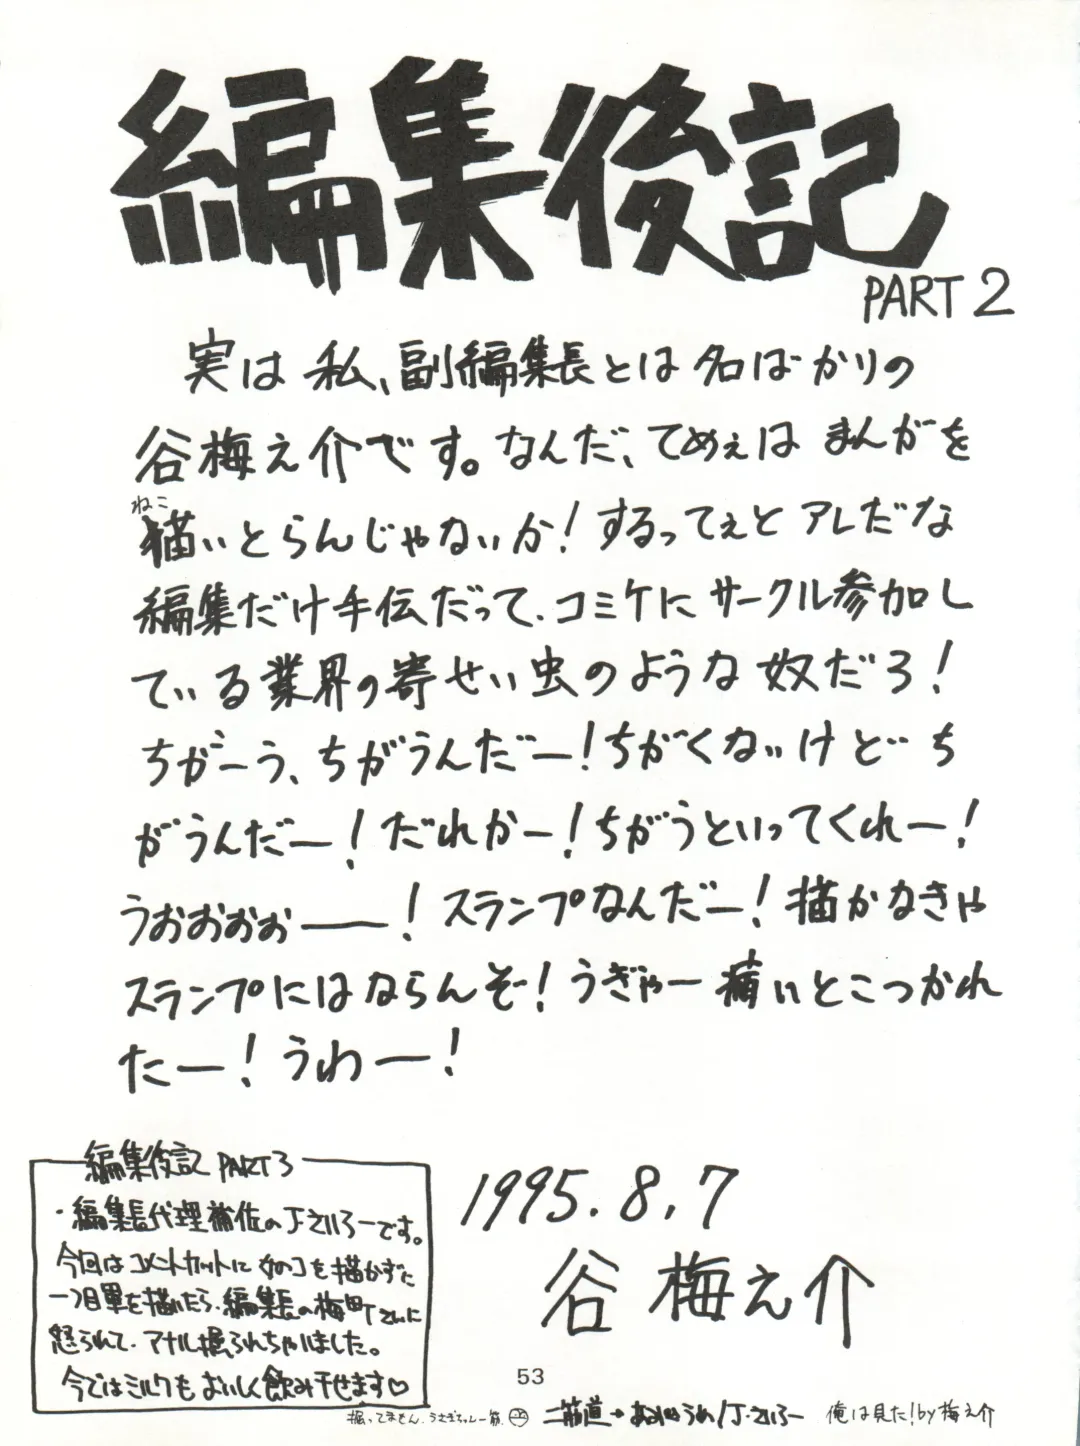 編集後記
PART 2
実は私、副編集長とは名ばかりの
谷梅之介です。なんだ、てめぇはまんがを
ねこ
描いとらんじゃないか!するってぇとアレだな
編集だけ手伝だって、コミケにサークル参加し
ている業界の寄せい虫のような奴だろ!
ちがーう、ちがうんだー!ちがくないけどち
がうんだー!だれかー!ちがうといってくれー!
うおおおぉ——!スランプなんだー!描かなきゃ
スランプにはならんぞ!うぎゃー痛いとこつかれ
たー!うわー!
編集後記 PART3
・編集長代理補佐のJ・さいろーです。
今回はコメントカットに女のコを描かずに
一つ目罪を描いたら、編集長の梅町さんに
怒られて、アナル掘られちゃいました。
今ではミルクもおいしく飲み干せます♡
1995.8,7
谷梅之介
53
掘ってません。うさぎちゃん一筋。
二筋道→ J・さいろー
俺は見た!by梅之介